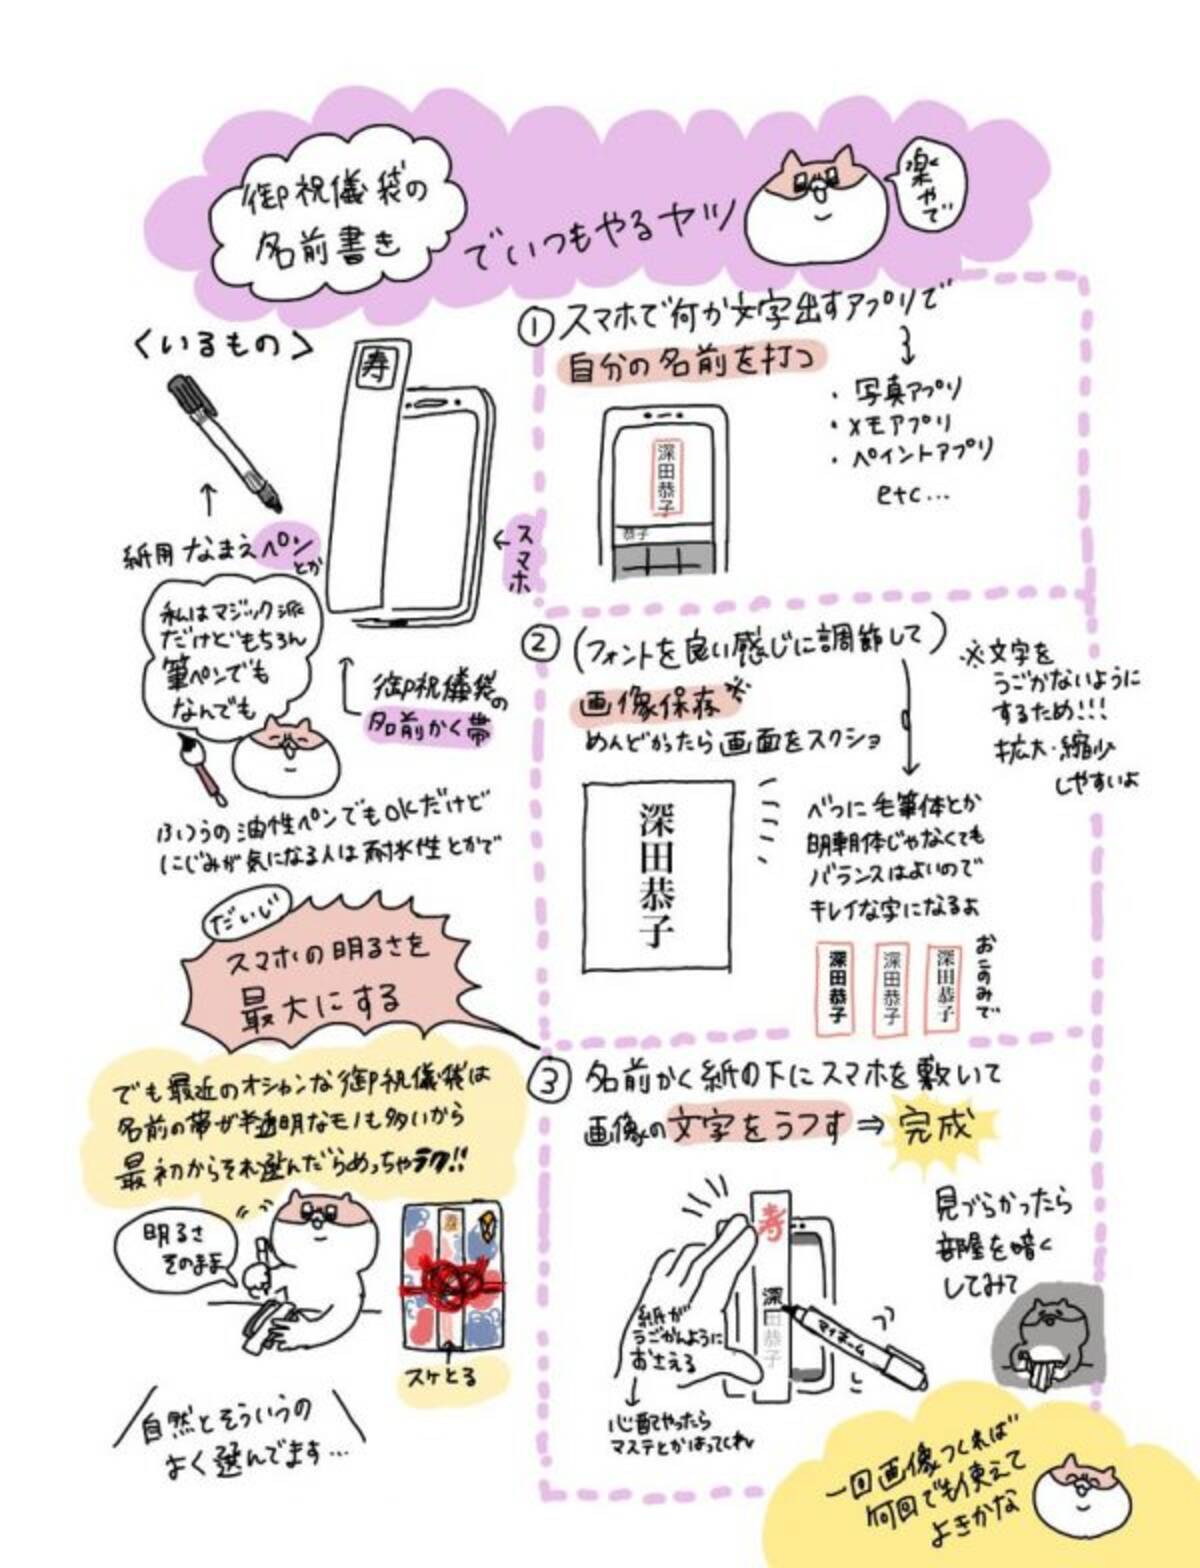 御祝儀袋の
名前書き
でいつもやるヤツ
楽やで
<いるもの>
寿
↑
紙用なまえペン
とか
←スマホ
私はマジック派
だけどもちろん
筆ペンでも
なんでも
御祝儀袋の
名前かく帯
ふつうの油性ペンでもOKだけど
にじみが気になる人は耐水性とかで
① スマホで何か文字出すアプリで
自分の名前を打つ
・写真アプリ
・メモアプリ
・ペイントアプリ
etc...
深田恭子
恭子
② (フォントを良い感じに調節して)
画像保存※
めんどかったら画面をスクショ
※文字を
うごかないように
するため!!!
拡大・縮少
しやすいよ
深田恭子
べつに毛筆体とか
明朝体じゃなくても
バランスはよいので
キレイな字になるよ
深田恭子
深田恭子
深田恭子
おこのみで
だいじ
スマホの明るさを
最大にする
③ 名前かく紙の下にスマホを敷いて
画像の文字をうつす⇒完成
寿
深田恭子
マイネーム
紙が
うごかんように
おさえる
心配やったら
マステとかはってくれ
見づらかったら
部屋を暗く
してみて
でも最近のオシャンな御祝儀袋は
名前の帯が半透明なモノも多いから
最初からそれ選んだらめっちゃラク!!
明るさ
そのまま
寿
スケとる
自然とそういうの
よく選んでます...
一回画像つくれば
何回でも使えて
よきかな